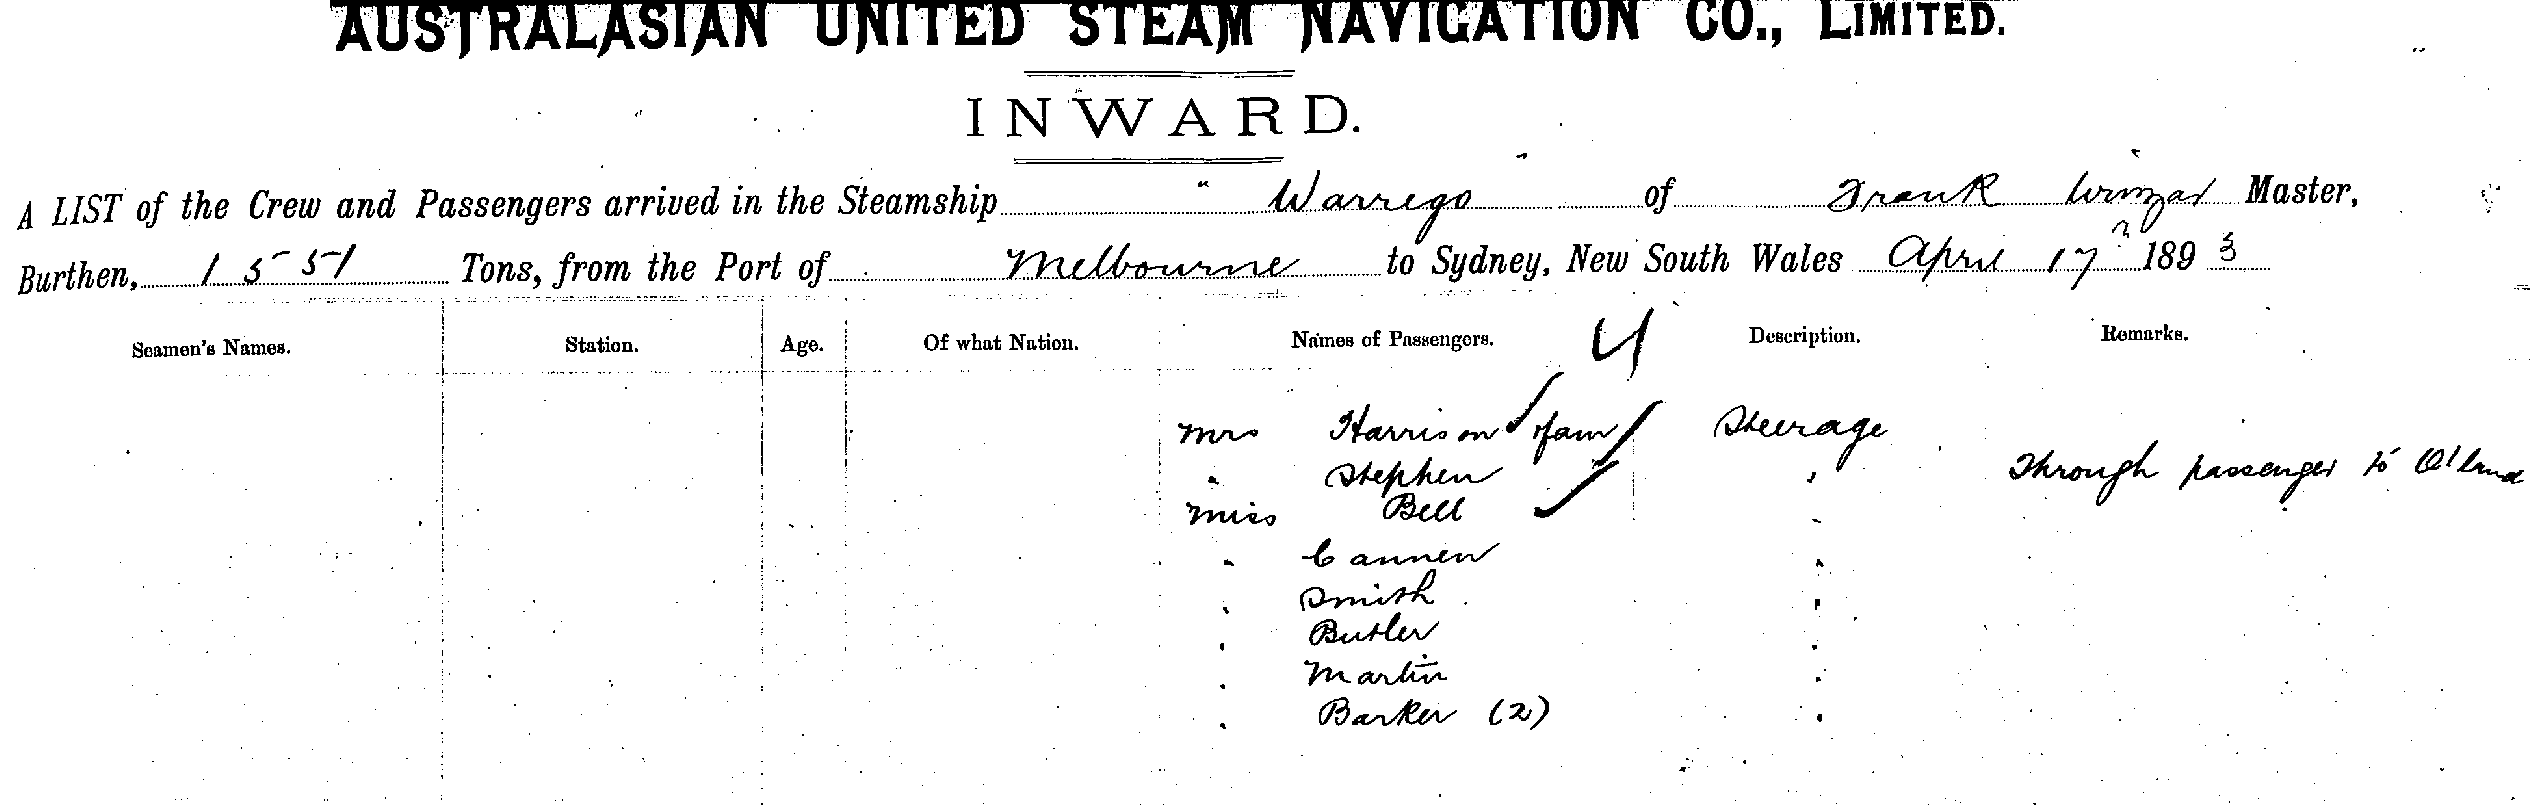 AUSTRALASIAN UNITED STEAM NAVIGATION CO., LIMITED.
INWARD.
A LIST of the Crew and Passengers arrived in the Steamship "Warrego" of Frank Winzar Master,
Burthen, 1551 Tons, from the Port of Melbourne to Sydney, New South Wales April 17 1893
Seamen's Names. Station. Age. Of what Nation. Names of Passengers. 4 Description. Remarks.
Mrs Harrison & fam Steerage
" Stephen " Through passenger to
Miss Bell "
" Cannen "
" Smith "
" Butler "
" Martin "
" Barker (2) "